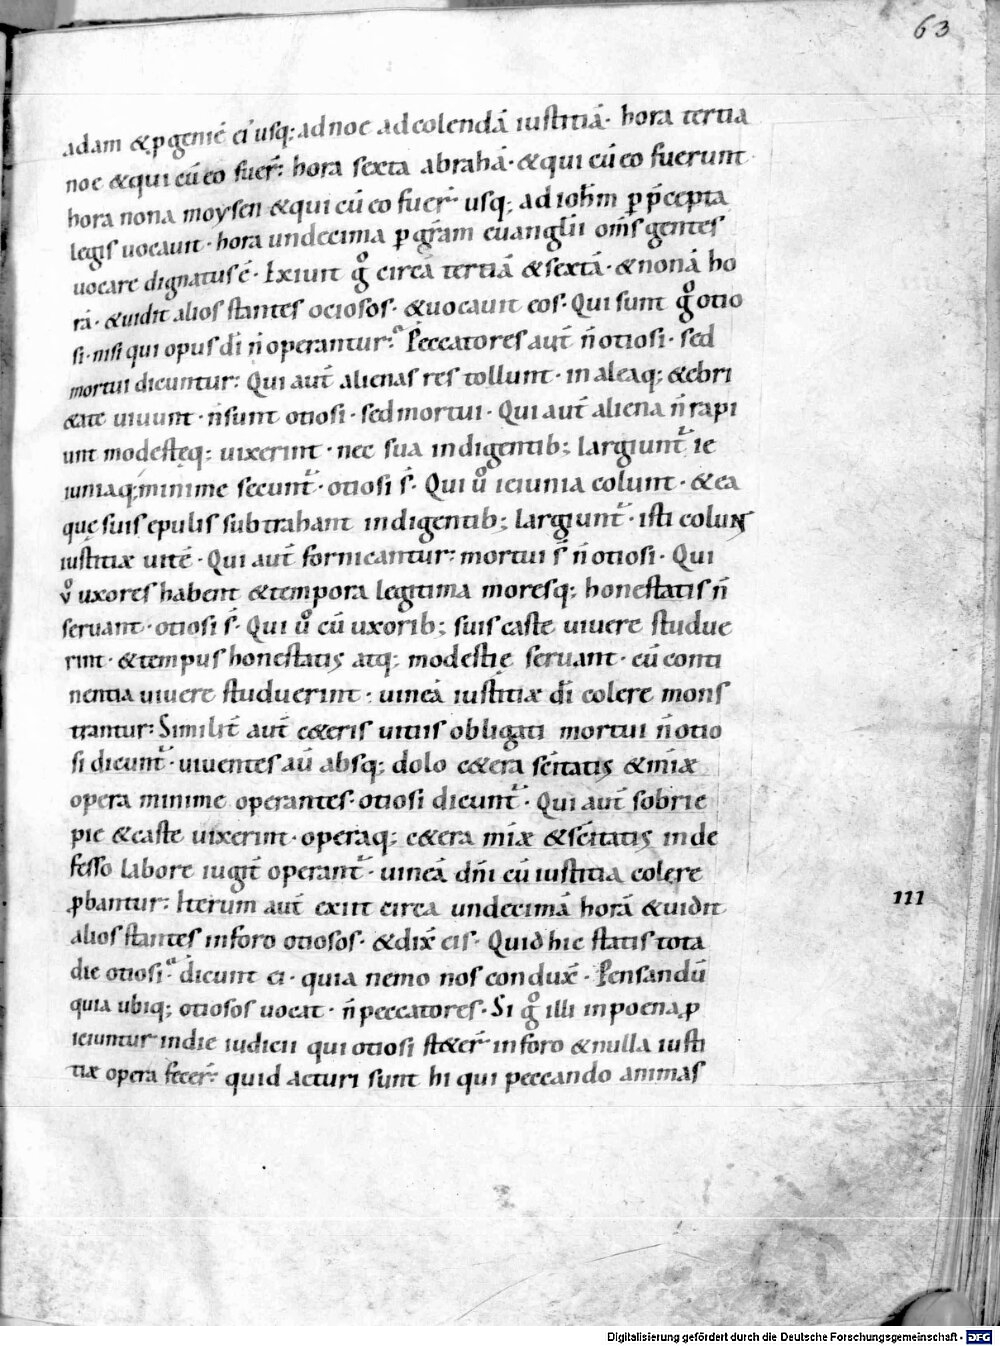 63
adam &ꝓgeniē ei' usq; adnoe adcolendā iustitiā· hora tertia
noe &qui cū eo fuer̄: hora sexta abrahā· &qui cū eo fuerunt·
hora nona moysen &qui cū eo fuer̄· usq; ad ioh̄m p p̄cepta
legis uocauit· hora undecima p gr̄am euanglii om̄s gentes
uocare dignatus ē· Exiuit g̊ circā tertiā & sextā· &nonā ho
rā· &uidit alios stantes ociosos· &uocauit eos· Qui sunt g̊ otio
si· nisi qui opus dī n̄ operantur: Peccatores aut̄ n̄ otiosi· sed
mortui dicuntur: Qui aut̄ alienas res tollunt· in aleaq; &ebri
&ate uiuunt· n̄ sunt otiosi· sed mortui· Qui aut̄ aliena n̄ rapi
unt modesteq; uixerint· nec sua indigentib; largiunt̄ ie
iuniaq; minime secunt̄· otiosi s̄· Qui ů ieiunia colunt· &ea
quę suis epulis subtrahant indigentib; largiunt̄· isti colunt
iustitiæ uitē· Qui aut̄ fornicantur: mortui s̄ n̄ otiosi· Qui
v̊ uxores habent &tempora legitima moresq; honestatis n̄
seruant· otiosi s̄· Qui ů cū uxorib; suis caste uiuere studue
rint· &tempus honestatis atq; modestię seruant· cū conti
nentia uiuere studuerint· uineā iustitiæ dī colere mons
trantur: Similit̄ aut̄ c&eris uitiis obligati mortui n̄ otio
si dicunt̄· uiuentes aū absq; dolo c&era sc̄itatis &mīæ
opera minime operantes· otiosi dicunt̄· Qui aut̄ sobrie
pie &caste uixerint· operaq; c&era mīæ &sc̄itatis inde
fesso labore iugit̄ operant̄· uineā dn̄i cū iustitia colere
ꝓbantur: Iterum aut̄ exiit circa undecimā horā &uidit
alios stantes inforo otiosos· &dix̄ eis· Quid hic statis tota
die otiosi· dicunt ei· quia nemo nos condux̄· Pensandū
quia ubiq; otiosos uocat· n̄ peccatores· Si g̊ illi inpoena ꝓ
ieiuntur indie iudicii qui otiosi st&er̄ inforo &nulla iusti
tiæ opera fecer̄: quid acturi sunt hi qui peccando animas
III
Digitalisierung gefördert durch die Deutsche Forschungsgemeinschaft - DFG